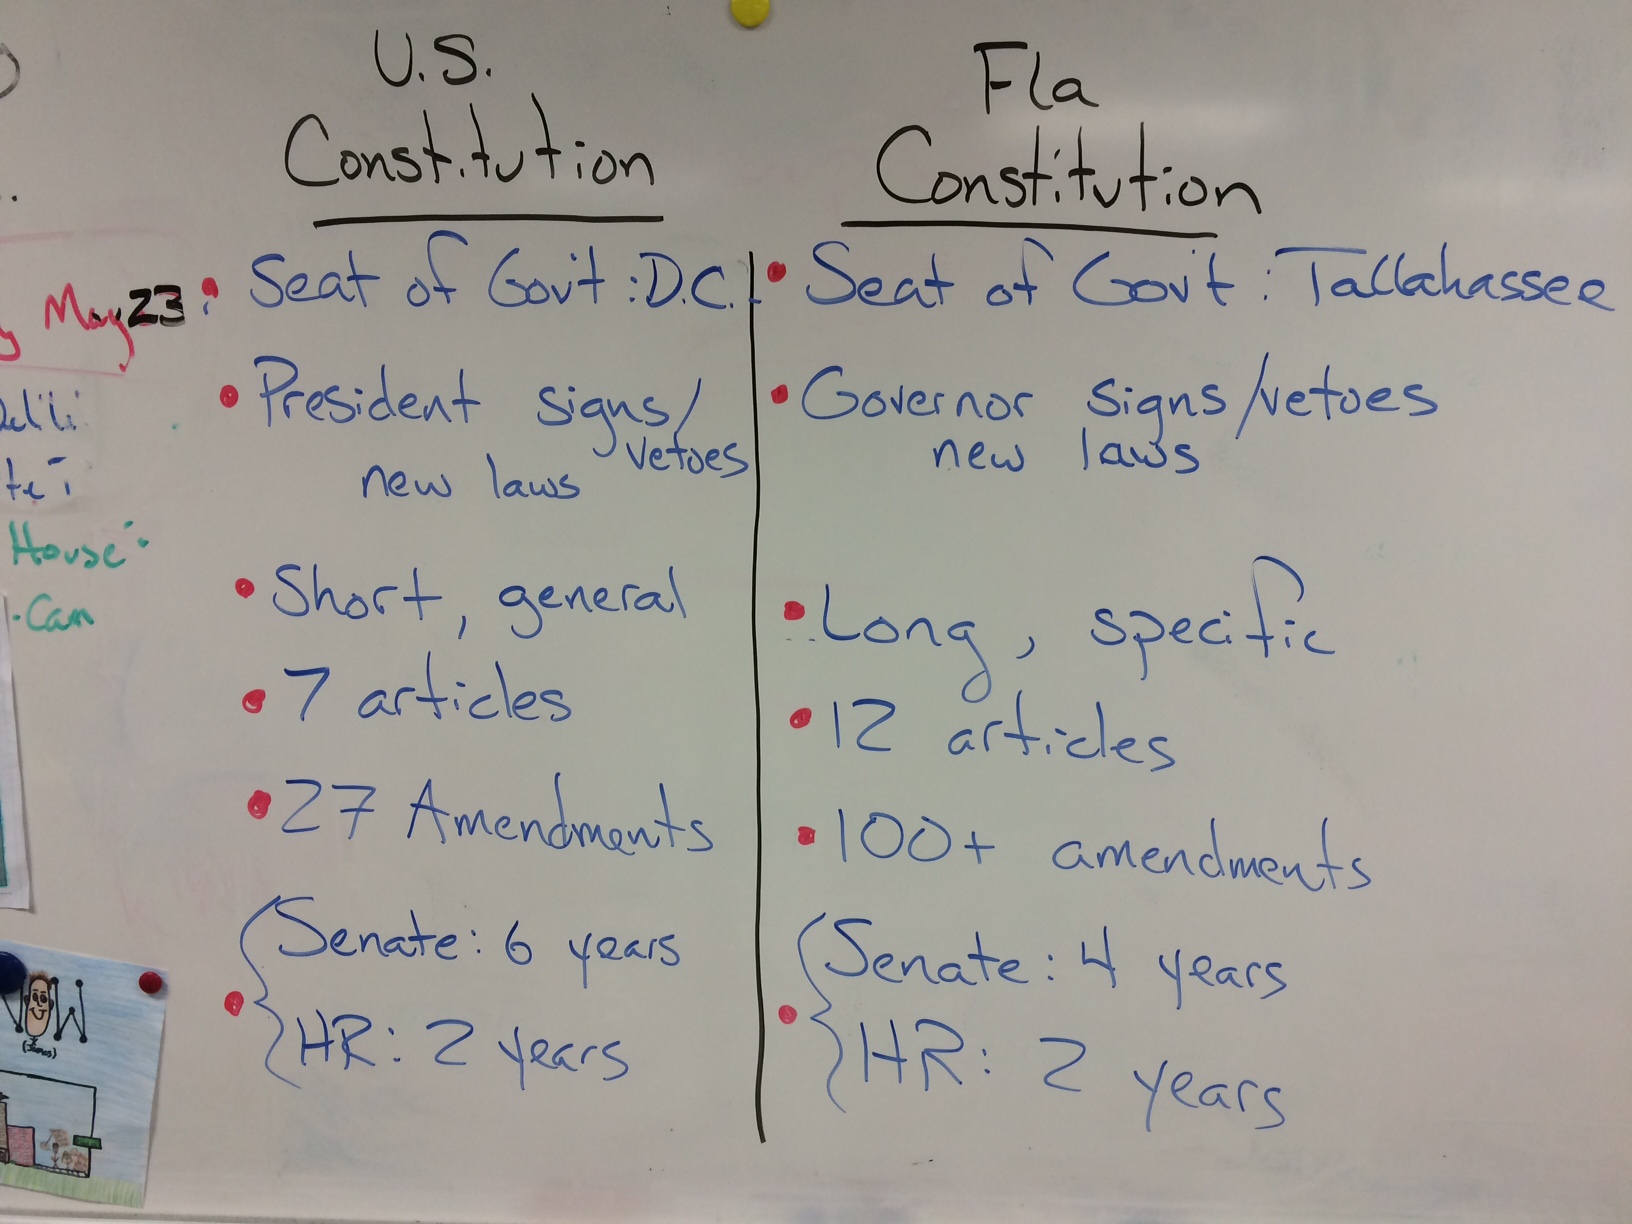 U.S.
Constitution
• Seat of Gov't : D.C.
• President signs/
vetoes
new laws
• Short, general
• 7 articles
• 27 Amendments
• Senate: 6 years
HR: 2 years
Fla
Constitution
• Seat of Gov't : Tallahassee
• Governor signs/vetoes
new laws
• Long, specific
• 12 articles
• 100+ amendments
• Senate: 4 years
HR: 2 years
May 23
House